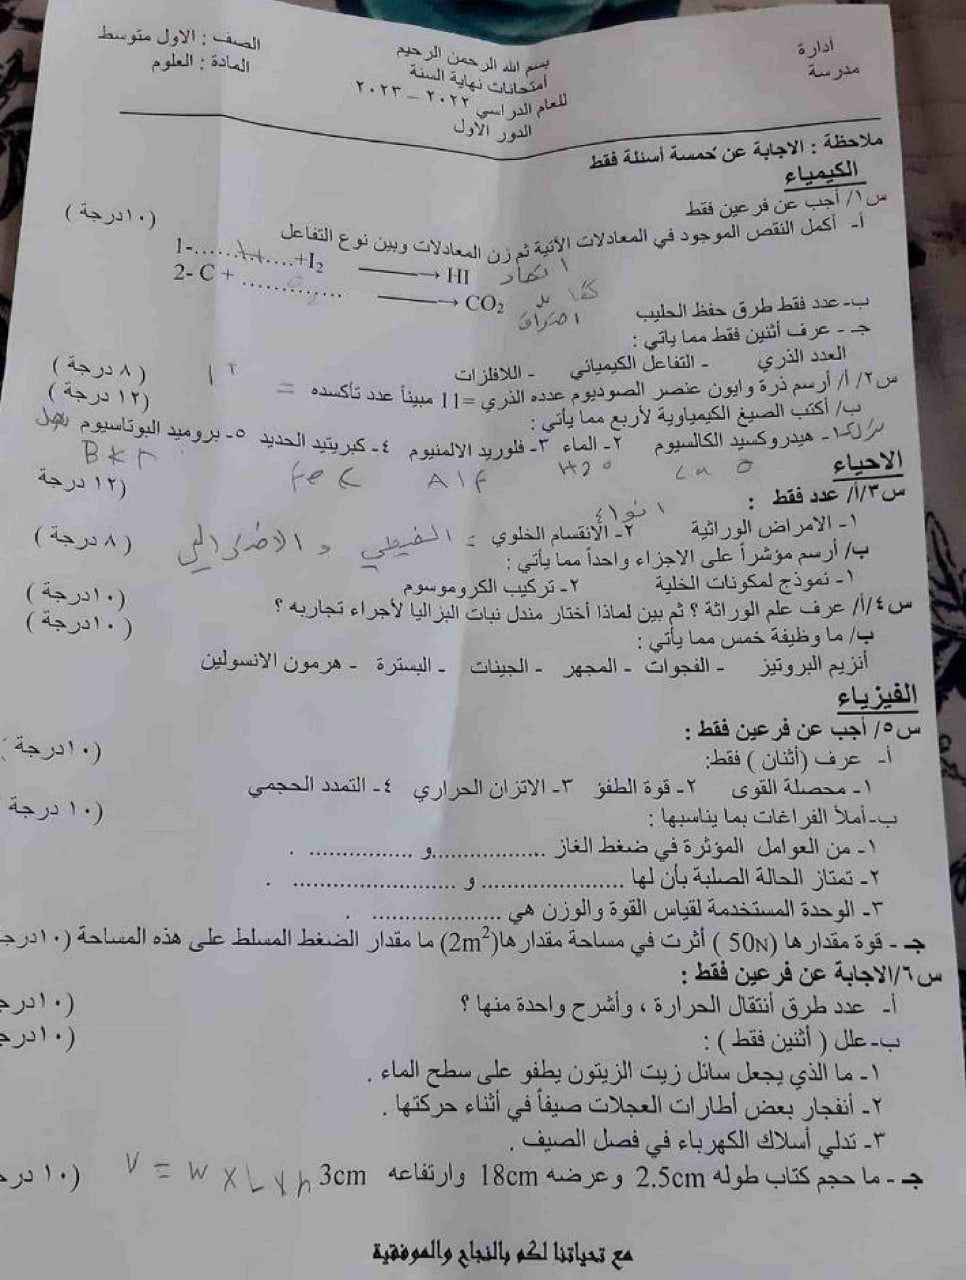 أدارة
مدرسة
بسم الله الرحمن الرحيم
أمتحانات نهاية السنة
للعام الدراسي ٢٠٢٢ – ٢٠٢٣
الدور الاول
الصف : الاول متوسط
المادة : العلوم
ملاحظة : الاجابة عن خمسة أسئلة فقط
الكيمياء
س١/ أجب عن فرعين فقط (١٠درجة )
أ- أكمل النقص الموجود في المعادلات الأتية ثم زن المعادلات وبين نوع التفاعل
1-............+I2 ⟶ HI اتحاد
2- C + ............... ⟶ CO2 احتراق
ب- عدد فقط طرق حفظ الحليب
جـ - عرف أثنين فقط مما يأتي :
العدد الذري - التفاعل الكيميائي - اللافلزات
س٢/ أ/ أرسم ذرة وايون عنصر الصوديوم عدده الذري =11 مبيناً عدد تأكسده = ( ٨ درجة )
ب/ أكتب الصيغ الكيمياوية لأربع مما يأتي : (١٢ درجة )
١- هيدروكسيد الكالسيوم ٢- الماء ٣- فلوريد الالمنيوم ٤- كبريتيد الحديد ٥- بروميد البوتاسيوم
Ca O H2O Alf Fe C BKr
الاحياء
س٣/أ/ عدد فقط : (١٢ درجة
١- الامراض الوراثية ٢- الأنقسام الخلوي = الخيطي و الاختزالي
انواع
ب/ أرسم مؤشراً على الاجزاء واحداً مما يأتي : ( ٨ درجة )
١- نموذج لمكونات الخلية ٢- تركيب الكروموسوم
س٤/أ/ عرف علم الوراثة ؟ ثم بين لماذا أختار مندل نبات البزاليا لأجراء تجاربه ؟ (١٠درجة )
ب/ ما وظيفة خمس مما يأتي : (١٠درجة )
أنزيم البروتيز - الفجوات - المجهر - الجينات - البسترة - هرمون الانسولين
الفيزياء
س٥/ أجب عن فرعين فقط :
أ- عرف (أثنان ) فقط: (١٠درجة )
١- محصلة القوى ٢- قوة الطفو ٣- الاتزان الحراري ٤- التمدد الحجمي
ب-أملأ الفراغات بما يناسبها : (١٠ درجة )
١- من العوامل المؤثرة في ضغط الغاز .................و ................ .
٢- تمتاز الحالة الصلبة بأن لها ...................... و ......................... .
٣- الوحدة المستخدمة لقياس القوة والوزن هي .................... .
جـ - قوة مقدارها (50N ) أثرت في مساحة مقدارها(2m2) ما مقدار الضغط المسلط على هذه المساحة (١٠درجـ
س٦/الاجابة عن فرعين فقط :
أ- عدد طرق أنتقال الحرارة ، وأشرح واحدة منها ؟ (١٠درجـ
ب-علل ( أثنين فقط ) : (١٠درجـ
١- ما الذي يجعل سائل زيت الزيتون يطفو على سطح الماء .
٢- أنفجار بعض أطارات العجلات صيفاً في أثناء حركتها .
٣- تدلي أسلاك الكهرباء في فصل الصيف .
جـ - ما حجم كتاب طوله 2.5cm وعرضه 18cm وارتفاعه 3cm V = W x L x h (١٠ درجـ
مع تحياتنا لكم بالنجاح والموفقية